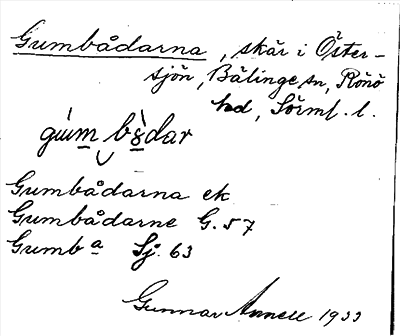 Gumbådarna, skär i Öster-
sjön, Bälinge sn, Rönö
hd, Sörml. l.
gùm bådar
Gumbådarna ek
Gumbådarne G. 57
Gumba Sj. 63
Gunnar Annell 1933